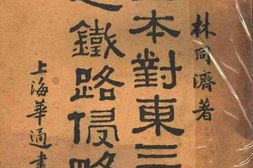 林同濟著
本對東三
之鐵路侵略
上海華通書